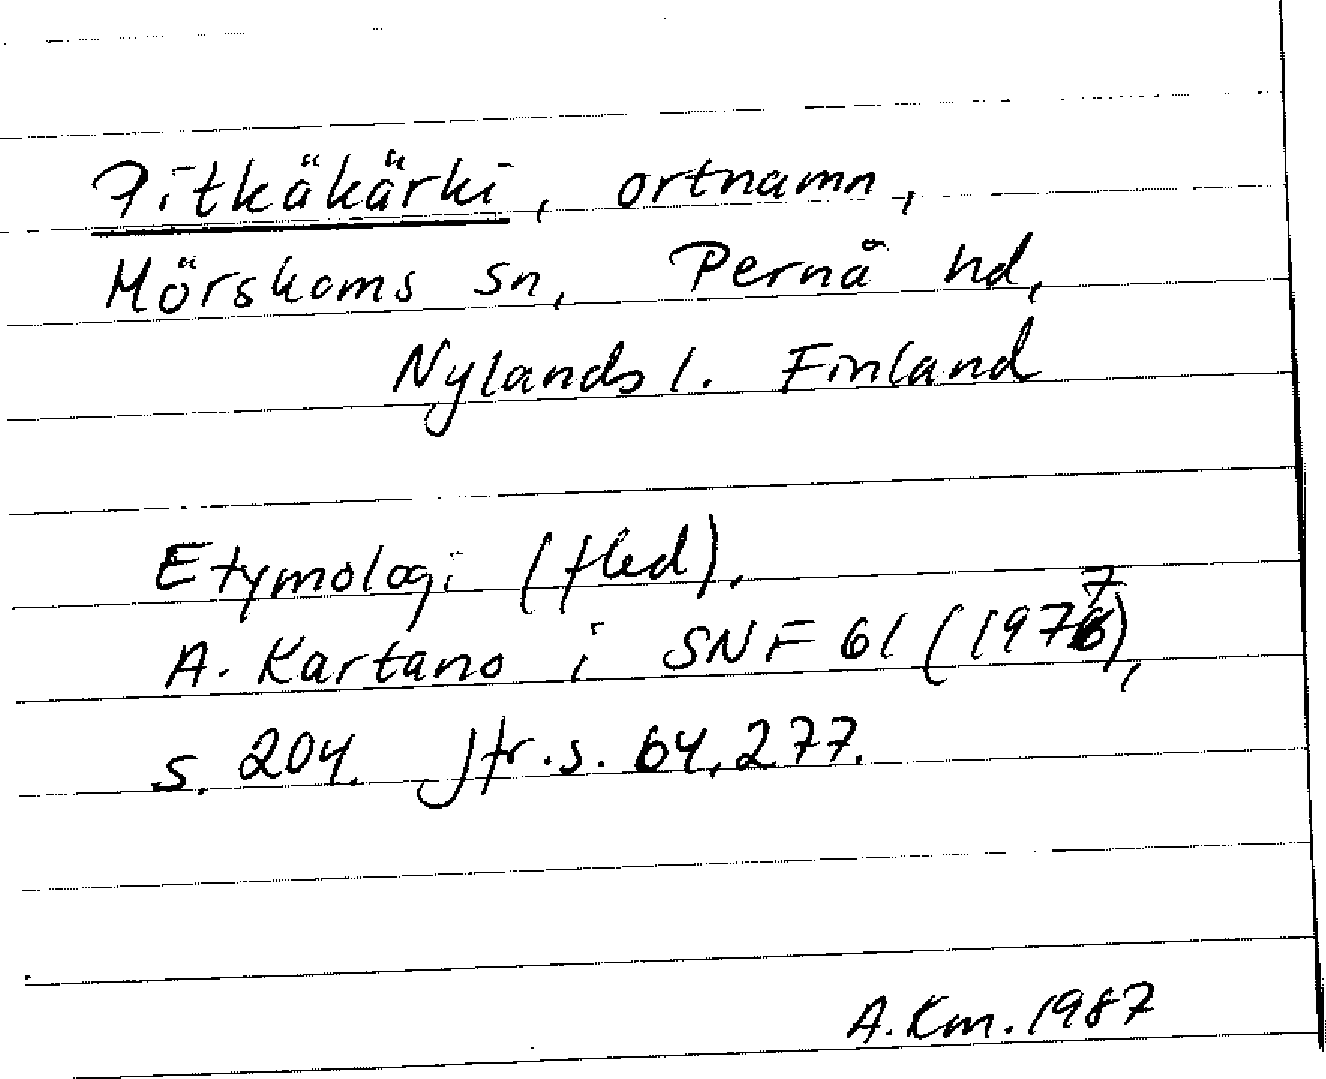 Pitkäkärki, ortnamn,
Mörskoms sn, Pernå hd,
Nylands l. Finland
Etymologi (fled).
A. Kartano i SNF 61 (1977),
s. 204. Jfr. s. 64, 277.
A. Km. 1987